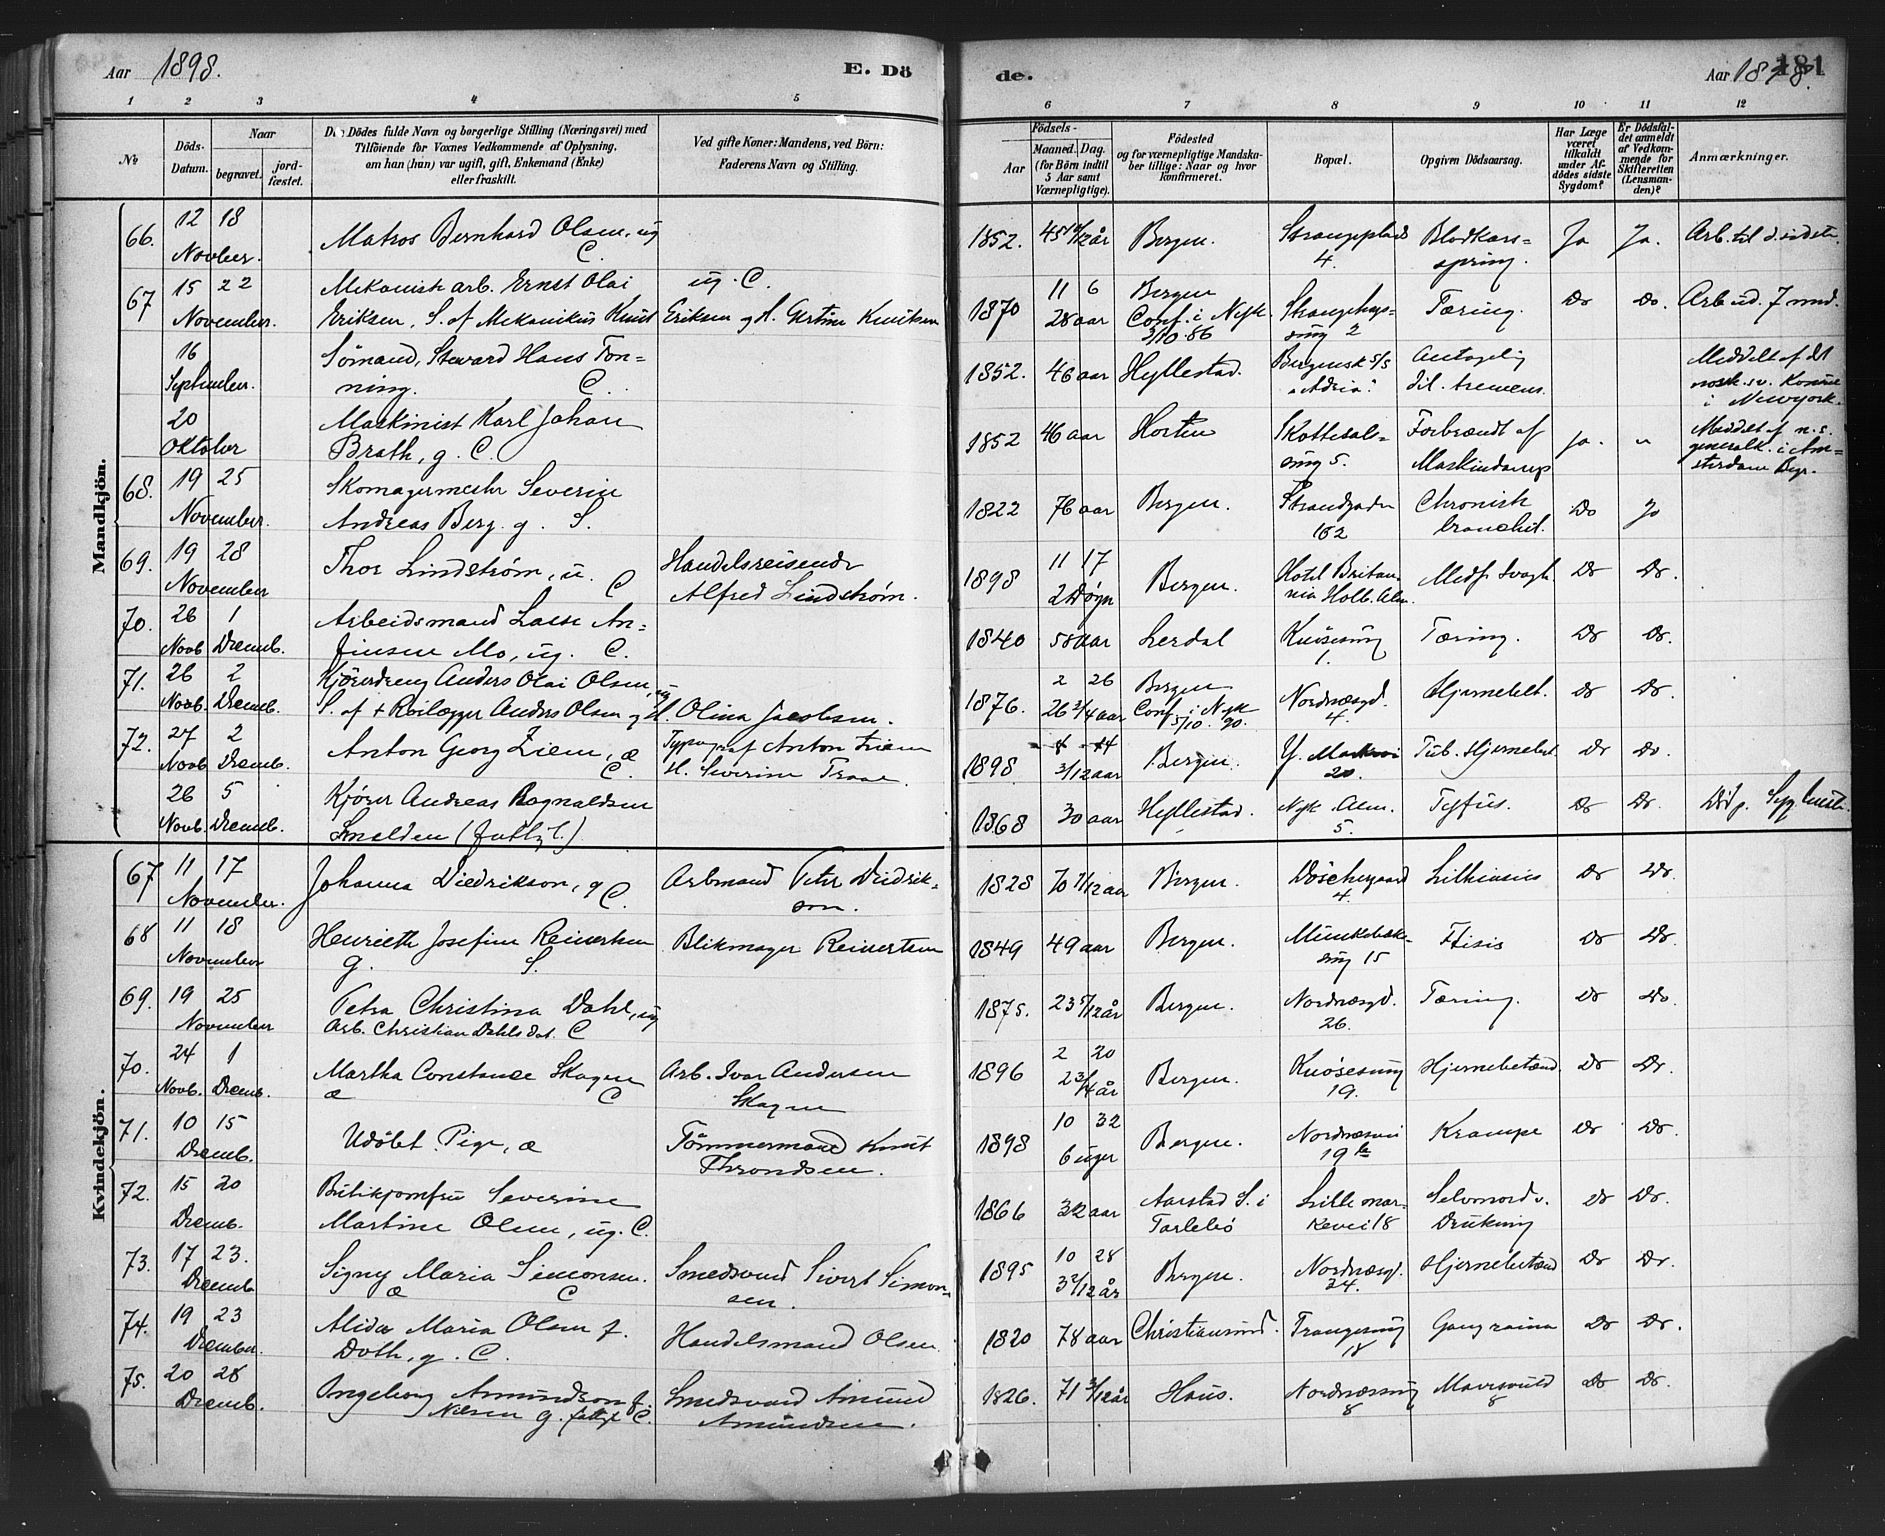 Aar 1898. E. Dö
de. Aar 1898. 181
1 2 3 4 5
6 7 8 9 10 11 12
No
Döds-
Datum.
Naar
begravet.
jord-
fæstet.
Den Dödes fulde Navn og borgerlige Stilling (Næringsvei) med
Tilföiende for Voxnes Vedkommende af Oplysning,
om han (hun) var ugift, gift, Enkemand (Enke)
eller fraskilt.
Ved gifte Koner: Mandens, ved Börn:
Faderens Navn og Stilling.
Födsels-
Aar
Maaned. Dag.
(for Börn indtil
5 Aar samt
Værnepligtige).
Födested
og for værnepligtige Mandska-
ber tillige: Naar og hvor
konfirmeret.
Bopæl.
Opgiven Dödsaarsag.
Har Læge
været
tilkaldt
under Af-
dödes sidste
Sygdom?
Er Dödsfal-
det anmeldt
af Vedkom-
mende for
Skifteretten
(Lensman-
den)?
Anmærkninger.
Mandkjön.
66. 12 18 Novber. Matros Bernhard Olsen, ug C. 1852. 45 10/12 år Bergen. Strangeplads 4. Blodkars=
spring. Ja Ja. Arb. til d. sidste.
67 15 22 November. Mekanisk arb. Ernst Olai ug. C.
Eriksen, S. af Mekanikus Knut Eriksen og H. Gertine Knutsen 1870 11 6 28 aar Bergen
Conf. i Nyk. 3/10 86 Strangehag=
smug 2 Tæring. Do Do. Arb. ud. 7 mnd.
16 September. Sömand, Steward Hans Ton=
ning. C. 1852. 46 aar Hyllestad. Bergensk S/S
"Adria". Antagelig
dil. tremens. Meddelt af det
norsk. sv. Konsul
i Newyork.
20 Oktober Maskinist Karl Johan
Brath, g. C. 1852 46 aar Horten Skottesals=
smug 5. Forbrændt af
Maskindamp ja. " Meddelt af n. s.
generalk. i Am=
sterdam
68. 19 25 November. Skomagermester Severin
Andreas Berg. g. S. 1822 76 aar Bergen. Strandgaden
162 Chronisk
bronchit. Do Jo
69. 19 28 November Thor Lindström, u. C Handelsreisende
Alfred Lindström. 1898 11 17 2 Døgn Bergen. Hotel Britan-
nia Holb. Alm. Medf. Svagh. Do Do.
70. 26 1 Novb Dcemb. Arbeidsmand Lasse An=
finsen Mo, ug. C. 1840 58 aar Lerdal Knøsesmug
1. Tæring. Do Do.
71. 26 2 Novb. Dcemb. Kjöredreng Anders Olai Olsen, ug
S. af + Reilægger Anders Olsen og H. Olina Jacobsen. 1876. 2 26 Bergen
Conf. i Nyk 5/10. 90. Nordnæsgd.
4. Hjernebet. Do Do.
72. 27 2 Novb Dcemb. Anton Georg Ziem, æ C. Typograf Anton Ziem
H. Severine Traae 1898 3/12 aar Bergen. Y. Markvei
20. Tub. Hjernebet Do Do
26 5 Novb. Dcemb. Kjörer Andreas Ragnaldsen
Smelden 1868 30 aar Hyllestad. Nyk Alm.
5. Tyfus. Do Do.
Kvindekjön.
67 11 17 November. Johanna Diedrikson, g C. Arbmand Peter Diedrik-
son. 1828 70 7/12 aar Bergen. Döschergaard
4. Do Do.
68 11 18 November Henriette Josefine Reinertsen
g. S. Blikmager Reinertsen 1849 49 aar Bergen. Munkebæk-
smug 15 Ftisis Do Do.
69. 19 25 November Petra Christina Dahl, ug
Arb. Christian Dahls dat. C 1875. 23 5/12 år Bergen. Nordnæsgd.
26. Tæring. Do Do.
70. 24 1 Novb. Dcemb. Martha Constance Skagen
æ C Arb. Ivar Andersen
Skagen 1896 2 20 2 3/4 år Bergen. Knøsesmug
19. Hjernebetænd. Do Do.
71. 10 15 Dcemb. Udöbt Pige, æ Tömmermand Knut
Throndsen. 1898 10 32 6 uger Bergen. Nordnæsvei
19 Krampe Do Do.
72. 15 20 Dcemb. Butikjomfru Severine
Martine Olsen, ug. C. 1866 32 aar Aarstad S. i
Lille mar-
kevei 18 Selvmord v.
Drukning Do Do.
73. 17 23. Dcemb Signy Maria Simonsen.
æ C Smedsvend Sivert Simon-
sen. 1895 10 28 3 2/12 år Bergen. Nordnæsgd.
24. Hjernebetænd Do Do.
74. 19 23 Dcember Alida Maria Olsen f.
Doth, g. C. Handelsmand Olsen. 1820 78 aar Christiansund. Trangesmug
18 Gangraina Do Do.
75. 20 28 Dcemb. Ingeborg Amundson f.
Nilsen g. C. Smedsvend Amund
Amundsen. 1826. 71 3/12 år Haus. Nordnæssmug
8 Do Do.